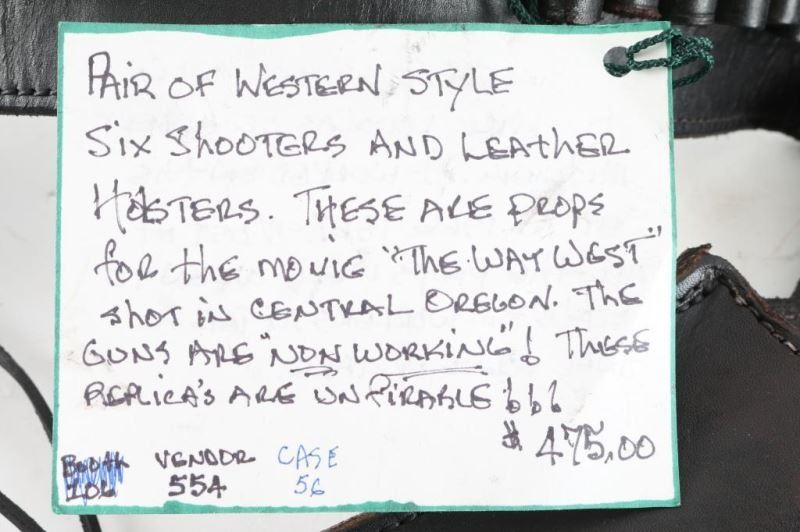 PAIR OF WESTERN STYLE
SIX SHOOTERS AND LEATHER
HOLSTERS. THESE ARE PROPS
FOR THE MOVIE "THE WAY WEST"
SHOT IN CENTRAL OREGON. THE
GUNS ARE "NON WORKING"! THESE
REPLICA'S ARE UNFIRABLE!!!
$475.00
BOOTH VENDOR CASE
106 554 56